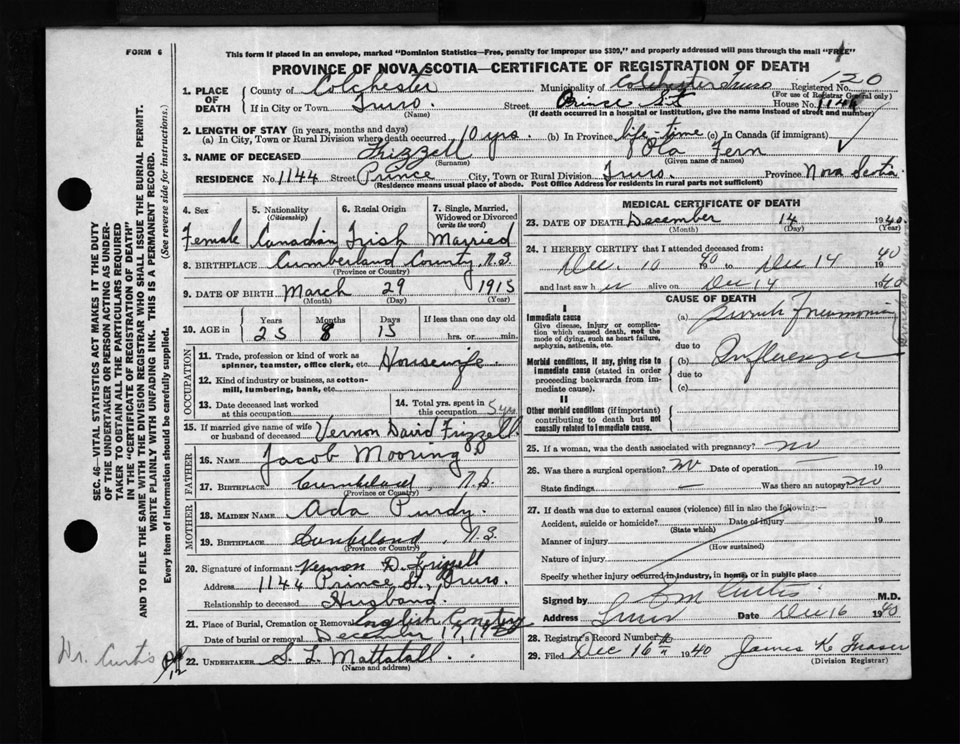 FORM 6
This form if placed in an envelope, marked "Dominion Statistics—Free, penalty for improper use $300," and properly addressed will pass through the mail "FREE"
PROVINCE OF NOVA SCOTIA—CERTIFICATE OF REGISTRATION OF DEATH
1. PLACE OF DEATH County of Colchester Municipality of Colchester Truro Registered No. 120
(For use of Registrar General only)
If in City or Town Truro. Street Prince St House No. 1144
(Name) (If death occurred in a hospital or institution, give the name instead of street and number)
2. LENGTH OF STAY (in years, months and days)
(a) In City, Town or Rural Division where death occurred 10 yrs. (b) In Province life-time (c) In Canada (if immigrant)
3. NAME OF DECEASED Frizzell Iola Fern
(Surname) (Given name or names)
RESIDENCE No. 1144 Street Prince City, Town or Rural Division Truro. Province Nova Scotia
(Residence means usual place of abode. Post Office Address for residents in rural parts not sufficient)
4. Sex 5. Nationality (Citizenship) 6. Racial Origin 7. Single, Married, Widowed or Divorced (write the word)
Female Canadian Irish Married
8. BIRTHPLACE Cumberland County, N.S.
(Province or Country)
9. DATE OF BIRTH March 29 1915
(Month) (Day) (Year)
10. AGE in Years Months Days If less than one day old
25 8 15 hrs. or min.
OCCUPATION
11. Trade, profession or kind of work as spinner, teamster, office clerk, etc. Housewife
12. Kind of industry or business, as cotton-mill, lumbering, bank, etc.
13. Date deceased last worked at this occupation
14. Total yrs. spent in this occupation 5 yrs
15. If married give name of wife or husband of deceased Vernon David Frizzell
FATHER
16. NAME Jacob Mooring
17. BIRTHPLACE Cumberland, N.S.
(Province or Country)
MOTHER
18. MAIDEN NAME Ada Purdy
19. BIRTHPLACE Cumberland, N.S.
(Province or Country)
20. Signature of informant Vernon D. Frizzell
Address 1144 Prince St., Truro.
Relationship to deceased Husband.
21. Place of Burial, Cremation or Removal English Cemetery
Date of burial or removal December 17, 1940
22. UNDERTAKER S. L. Mattatall.
(Name and address)
MEDICAL CERTIFICATE OF DEATH
23. DATE OF DEATH December 14 1940.
(Month) (Day) (Year)
24. I HEREBY CERTIFY that I attended deceased from:
Dec. 10 1940 to Dec 14 1940
and last saw her alive on Dec 14 1940
CAUSE OF DEATH
I
Immediate cause
Give disease, injury or complication which caused death, not the mode of dying, such as heart failure, asphyxia, asthenia, etc.
(a) Pneumonia
due to
Morbid conditions, if any, giving rise to immediate cause (stated in order proceeding backwards from immediate cause).
(b) Influenza
due to
(c)
II
Other morbid conditions (if important) contributing to death but not causally related to immediate cause.
25. If a woman, was the death associated with pregnancy? no
26. Was there a surgical operation? no Date of operation 19
State findings — Was there an autopsy? no
27. If death was due to external causes (violence) fill in also the following:—
Accident, suicide or homicide? Date of injury 19
(State which)
Manner of injury
(How sustained)
Nature of injury
Specify whether injury occurred in industry, in home, or in public place
Signed by Curtis M.D.
Address Truro Date Dec 16 1940
28. Registrar's Record Number
29. Filed Dec 16th 1940 James K Fraser
(Division Registrar)
SEC. 46—VITAL STATISTICS ACT MAKES IT THE DUTY
OF THE UNDERTAKER OR PERSON ACTING AS UNDER-
TAKER TO OBTAIN ALL THE PARTICULARS REQUIRED
IN THE "CERTIFICATE OF REGISTRATION OF DEATH"
AND TO FILE THE SAME WITH THE DIVISION REGISTRAR WHO SHALL ISSUE THE BURIAL PERMIT.
WRITE PLAINLY WITH UNFADING INK. THIS IS A PERMANENT RECORD.
Every item of information should be carefully supplied. (See reverse side for instructions.)
Dr. Curtis